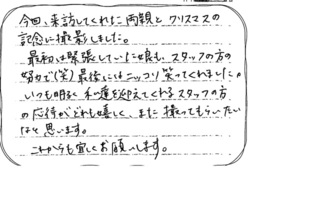 今回、来訪してくれた両親とクリスマスの
記念に撮影しました。
最初は緊張していた娘も、スタッフの方の
努力で(笑)最後にはニッコリ笑ってくれました。
いつも明るく私達を迎えてくれるスタッフの方
の応対がとても嬉しく、また撮ってもらいたい
なと思います。
これからも宜しくお願いします。